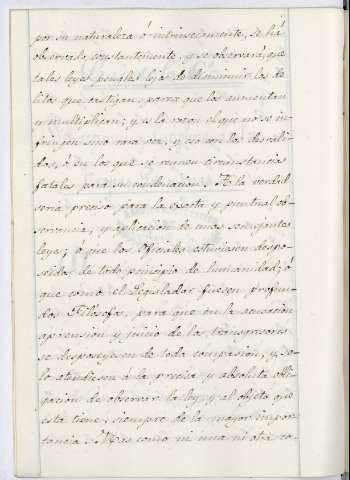 por su naturaleza ó intrinsecamente, se há
observado constantemente, y se observará, que
tales leyes penales lejos de disminuir los de
litos que castigan, parece que los aumentan
y multiplican; y es la razon el que no se in
fringen sino rara vez, y eso con los desvali-
dos, ó en los que se reunen circunstancias
fatales para su condenacion. A la verdad
seria preciso para la esacta y puntual ob-
servancia, y aplicacion de unas semejantes
leyes; ó que los Oficiales estuviesen despo-
seidos de todo principio de humanidad; ó
que como el Legislador fuesen profun-
dos Filosofos, para que en la acusacion
aprension y juicio de los transgresores
se desposeyesen de toda compasion, y so-
lo atendiesen á la precisa y absoluta obli-
gacion de observar la ley, y al objeto que
esta tiene, siempre de la mayor impor-
tancia. Mas como ni una ni otra co-